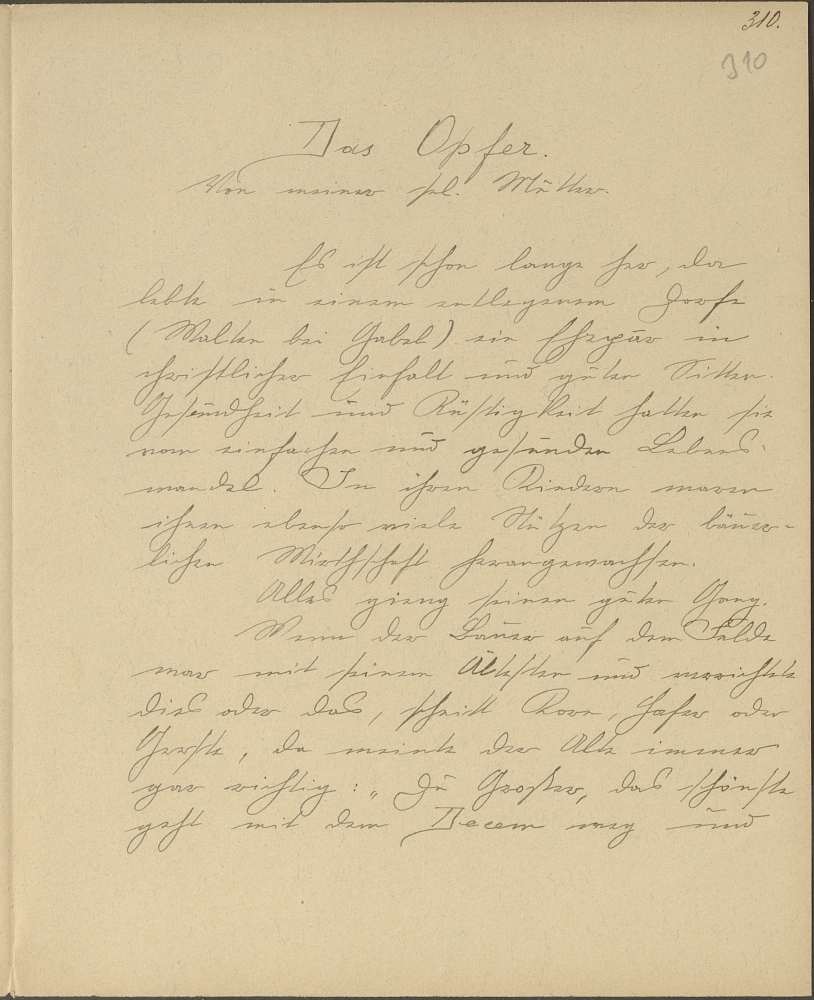 310.
310
Das Opfer.
Von meiner sel. Mutter.
Es ist schon lange her, da
lebte in einem entlegenem Dorfe
(Walten bei Gabel) ein Ehepar in
christlicher Einfalt und guter Sitten.
Gesundheit und Rüstigkeit hatten sie
vom einfachen und gesunden Lebens-
wandel. In ihren Kindern waren
ihnen ebenso viele Stützen der bäuer-
lichen Wirthschaft herangewachsen.
Alles gieng seinen guten Gang.
Wenn der Bauer auf dem Felde
war mit seinem Ältesten und verrichtete
dies oder das, schnitt Korn, Hafer oder
Gerste, da meinte der Alte immer
gar richtig: „Du Großer, das schönste
geht mit dem Decem weg und